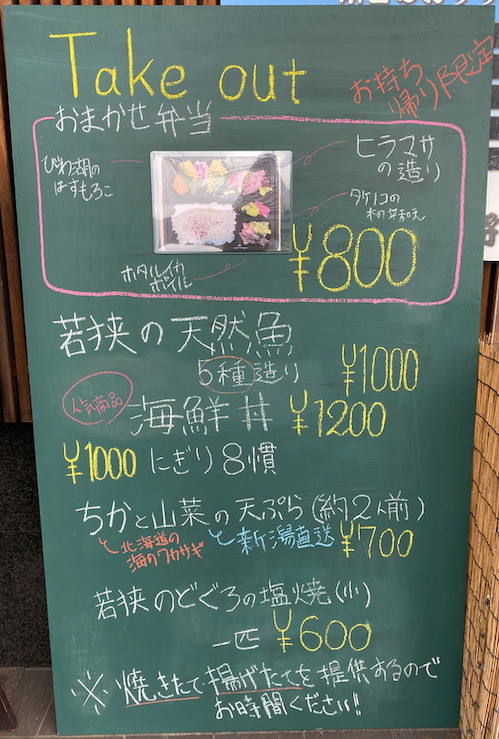 Take out
お持ち
帰り限定
おまかせ弁当
びわ湖の
はすもろこ
ヒラマサ
の造り
タケノコの
木の芽和え
ホタルイカ
ボイル
¥800
若狭の天然魚
5種造り ¥1000
人気商品
海鮮丼 ¥1200
¥1000 にぎり8慣
ちかと山菜の天ぷら(約2人前)
北海道の
海のワカサギ
新潟直送 ¥700
若狭のどぐろの塩焼(小)
一匹 ¥600
※焼きたて揚げたてを提供するので
お時間ください!!
野